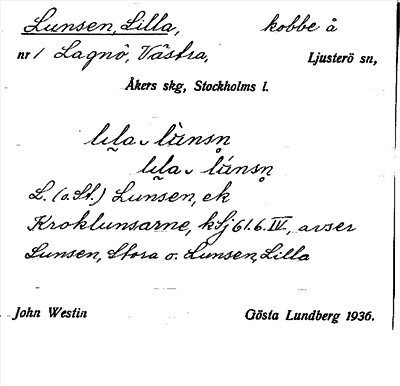 Lunsen, Lilla, kobbe å
nr 1 Lagnö, Västra, Ljusterö sn,
Åkers skg, Stockholms l.
lila lùnsn
lila lúnsn
L. (o. St.) Lunsen, ek
Kroklunsarne, kSj 61.6.IV, avser
Lunsen, Stora o. Lunsen, Lilla
John Westin Gösta Lundberg 1936.